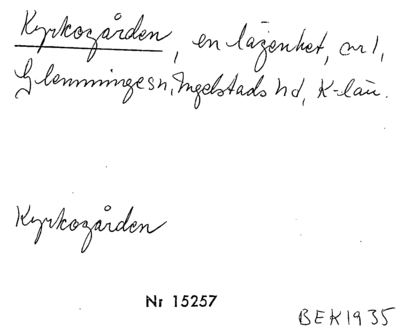 Kyrkogården, en lägenhet, nr 1,
Glemminge sn, Ingelstads hd, K-län.
Kyrkogården
Nr 15257
BEK1935